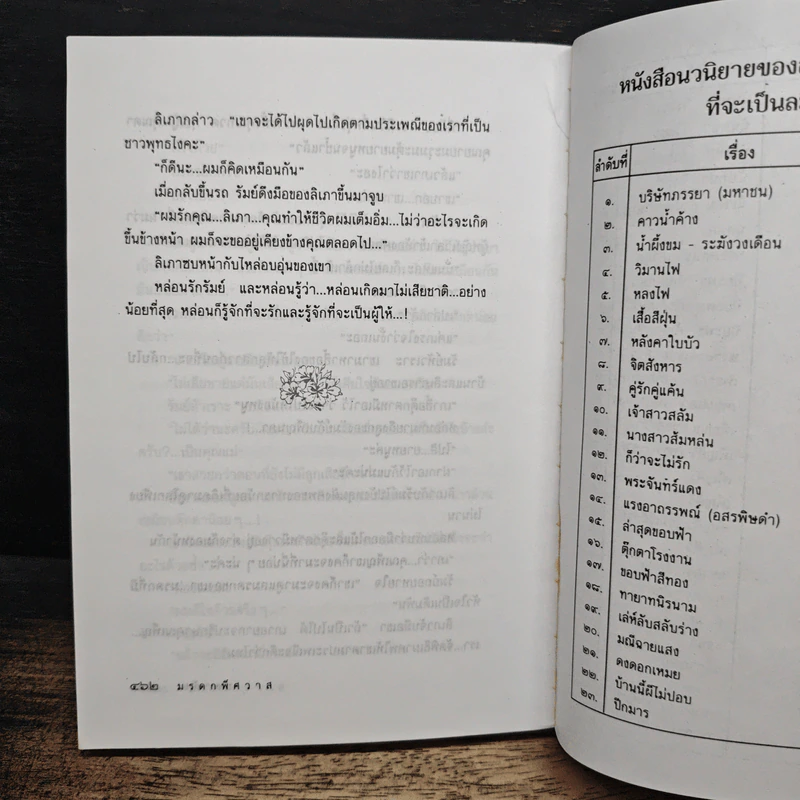 ลิเภากล่าว "เขาจะได้ไปผุดไปเกิดตามประเพณีของเราที่เป็น
ชาวพุทธไงคะ"
"ก็ดีนะ...ผมก็คิดเหมือนกัน"
เมื่อกลับขึ้นรถ รัมย์ดึงมือของลิเภาขึ้นมาจูบ
"ผมรักคุณ...ลิเภา...คุณทำให้ชีวิตผมเต็มอิ่ม...ไม่ว่าอะไรจะเกิด
ขึ้นข้างหน้า ผมก็จะขออยู่เคียงข้างคุณตลอดไป..."
ลิเภาซบหน้ากับไหล่อบอุ่นของเขา
หล่อนรักรัมย์ และหล่อนรู้ว่า...หล่อนเกิดมาไม่เสียชาติ...อย่าง
น้อยที่สุด หล่อนก็รู้จักที่จะรักและรู้จักที่จะเป็นผู้ให้...!
๔๖๒ มรดกพิศวาส
หนังสือนวนิยายของ
ที่จะเป็น
ลำดับที่ เรื่อง
๑. บริษัทภรรยา (มหาชน)
๒. คาวน้ำค้าง
๓. น้ำผึ้งขม - ระฆังวงเดือน
๔. วิมานไฟ
๕. หลงไฟ
๖. เสื้อสีฝุ่น
๗. หลังคาใบบัว
๘. จิตสังหาร
๙. คู่รักคู่แค้น
๑๐. เจ้าสาวสลัม
๑๑. นางสาวส้มหล่น
๑๒. ก็ว่าจะไม่รัก
๑๓. พระจันทร์แดง
๑๔. แรงอาถรรพณ์ (อสรพิษดำ)
๑๕. ล่าสุดขอบฟ้า
๑๖. ตุ๊กตาโรงงาน
๑๗. ขอบฟ้าสีทอง
๑๘. ทายาทนิรนาม
๑๙. เล่ห์ลับสลับร่าง
๒๐. มณีฉายแสง
๒๑. ดงดอกเหมย
๒๒. บ้านนี้ผีไม่ปอบ
๒๓. ปีกมาร